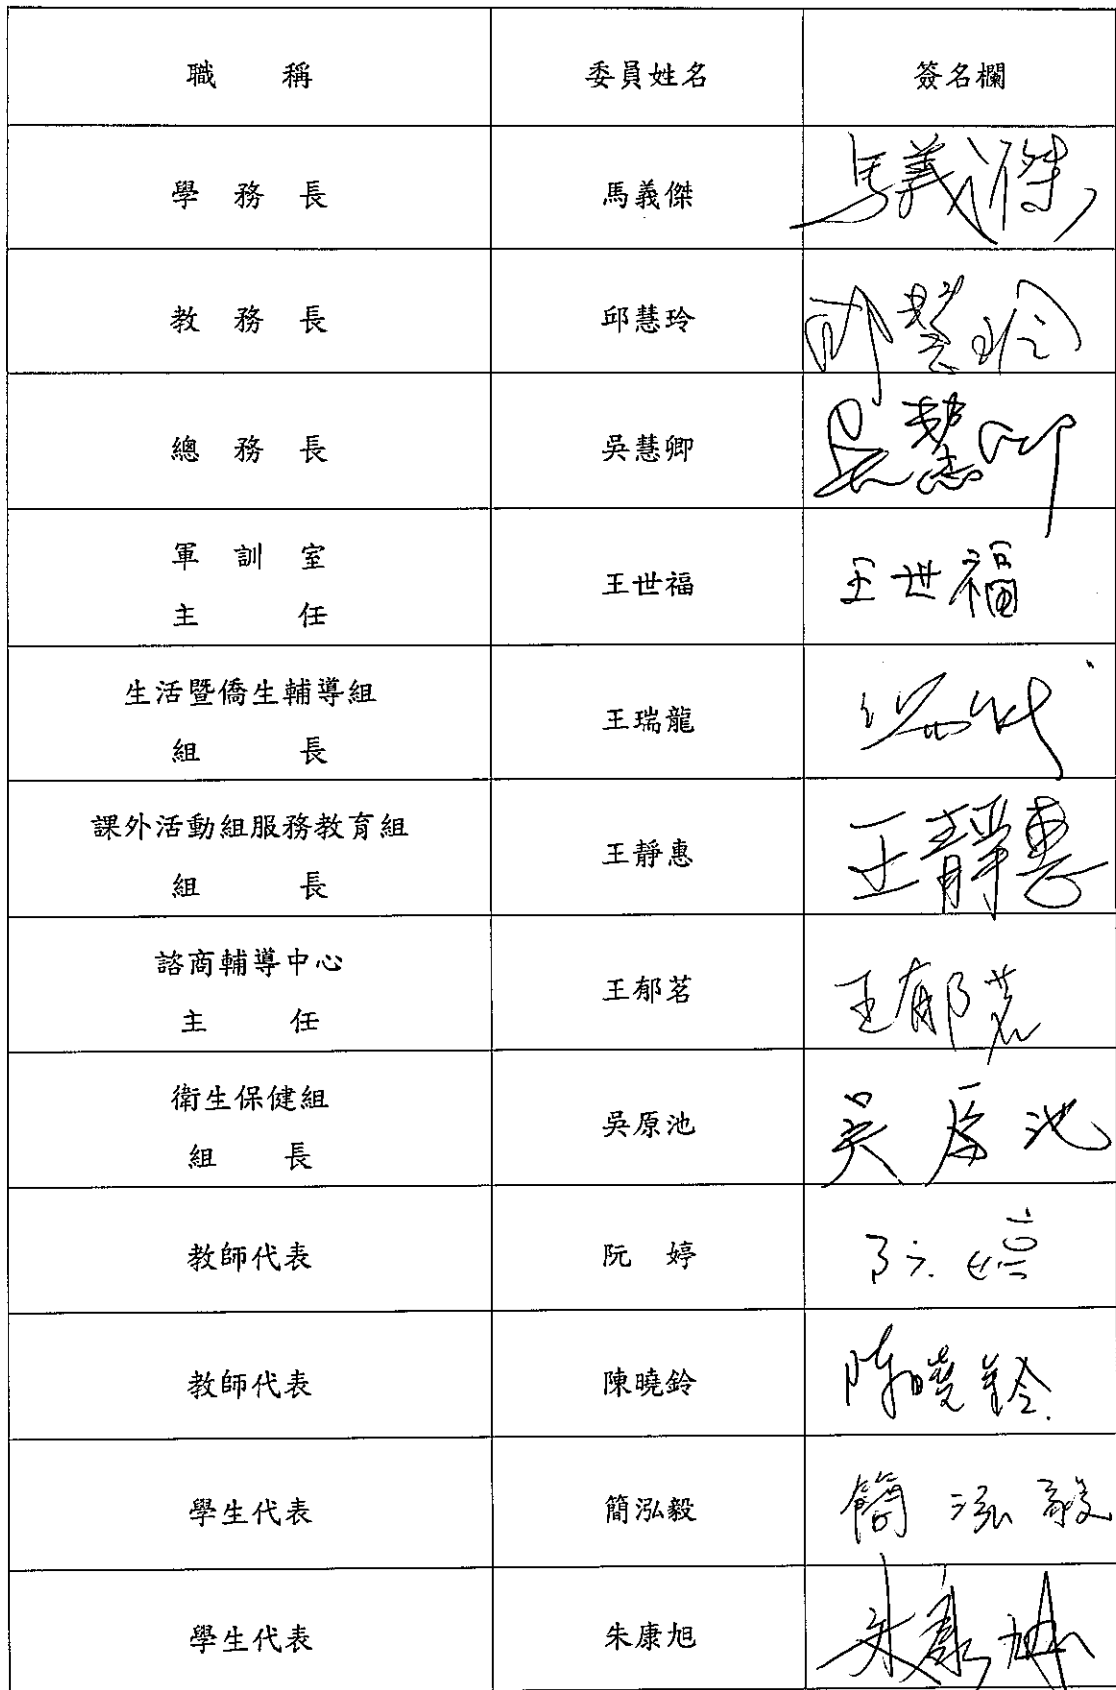 職 稱 委員姓名 簽名欄
學 務 長 馬義傑 馬義傑
教 務 長 邱慧玲 邱慧玲
總 務 長 吳慧卿 吳慧卿
軍 訓 室
主 任 王世福 王世福
生活暨僑生輔導組
組 長 王瑞龍
課外活動組服務教育組
組 長 王靜惠 王靜惠
諮商輔導中心
主 任 王郁茗 王郁茗
衛生保健組
組 長 吳原池 吳原池
教師代表 阮 婷 阮婷
教師代表 陳曉鈴 陳曉鈴
學生代表 簡泓毅 簡泓毅
學生代表 朱康旭 朱康旭